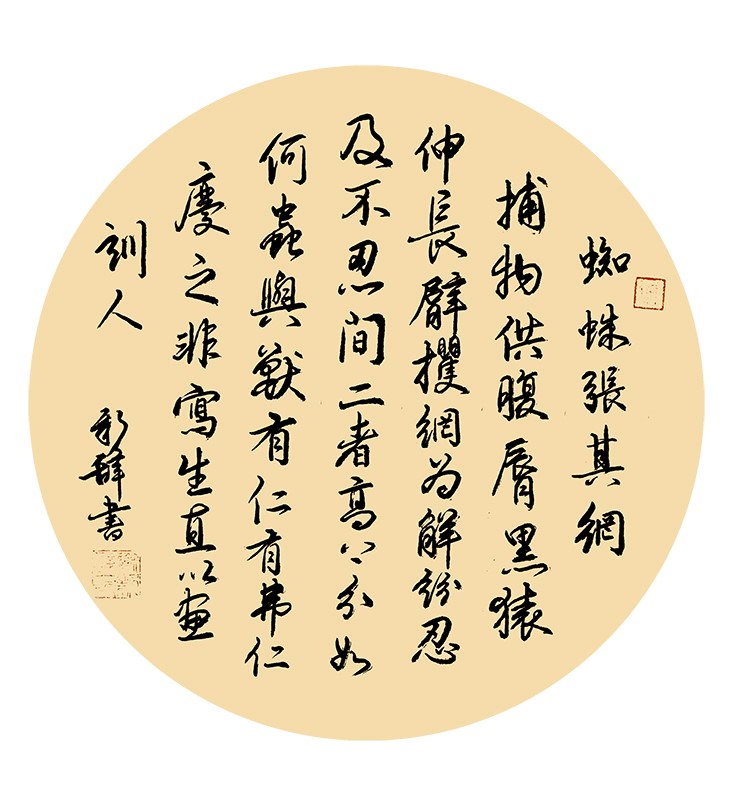 蜘蛛張其網
捕物供腹脣黑猿
伸長臂攫網為解紛忍
及不忍間二者高下分如
何蟲與獸有仁有弗仁
慶之非寫生直以畫
訓人
書